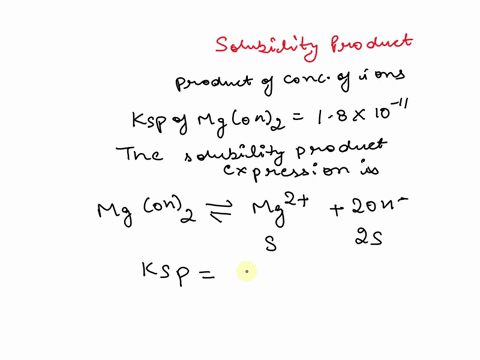 Solubility Product
product of conc. of ions
Ksp of Mg(OH)₂ = 1.8 × 10⁻¹¹
The solubility product
expression is
Mg(OH)₂ ⇌ Mg²⁺ + 2OH⁻
S 2S
Ksp =